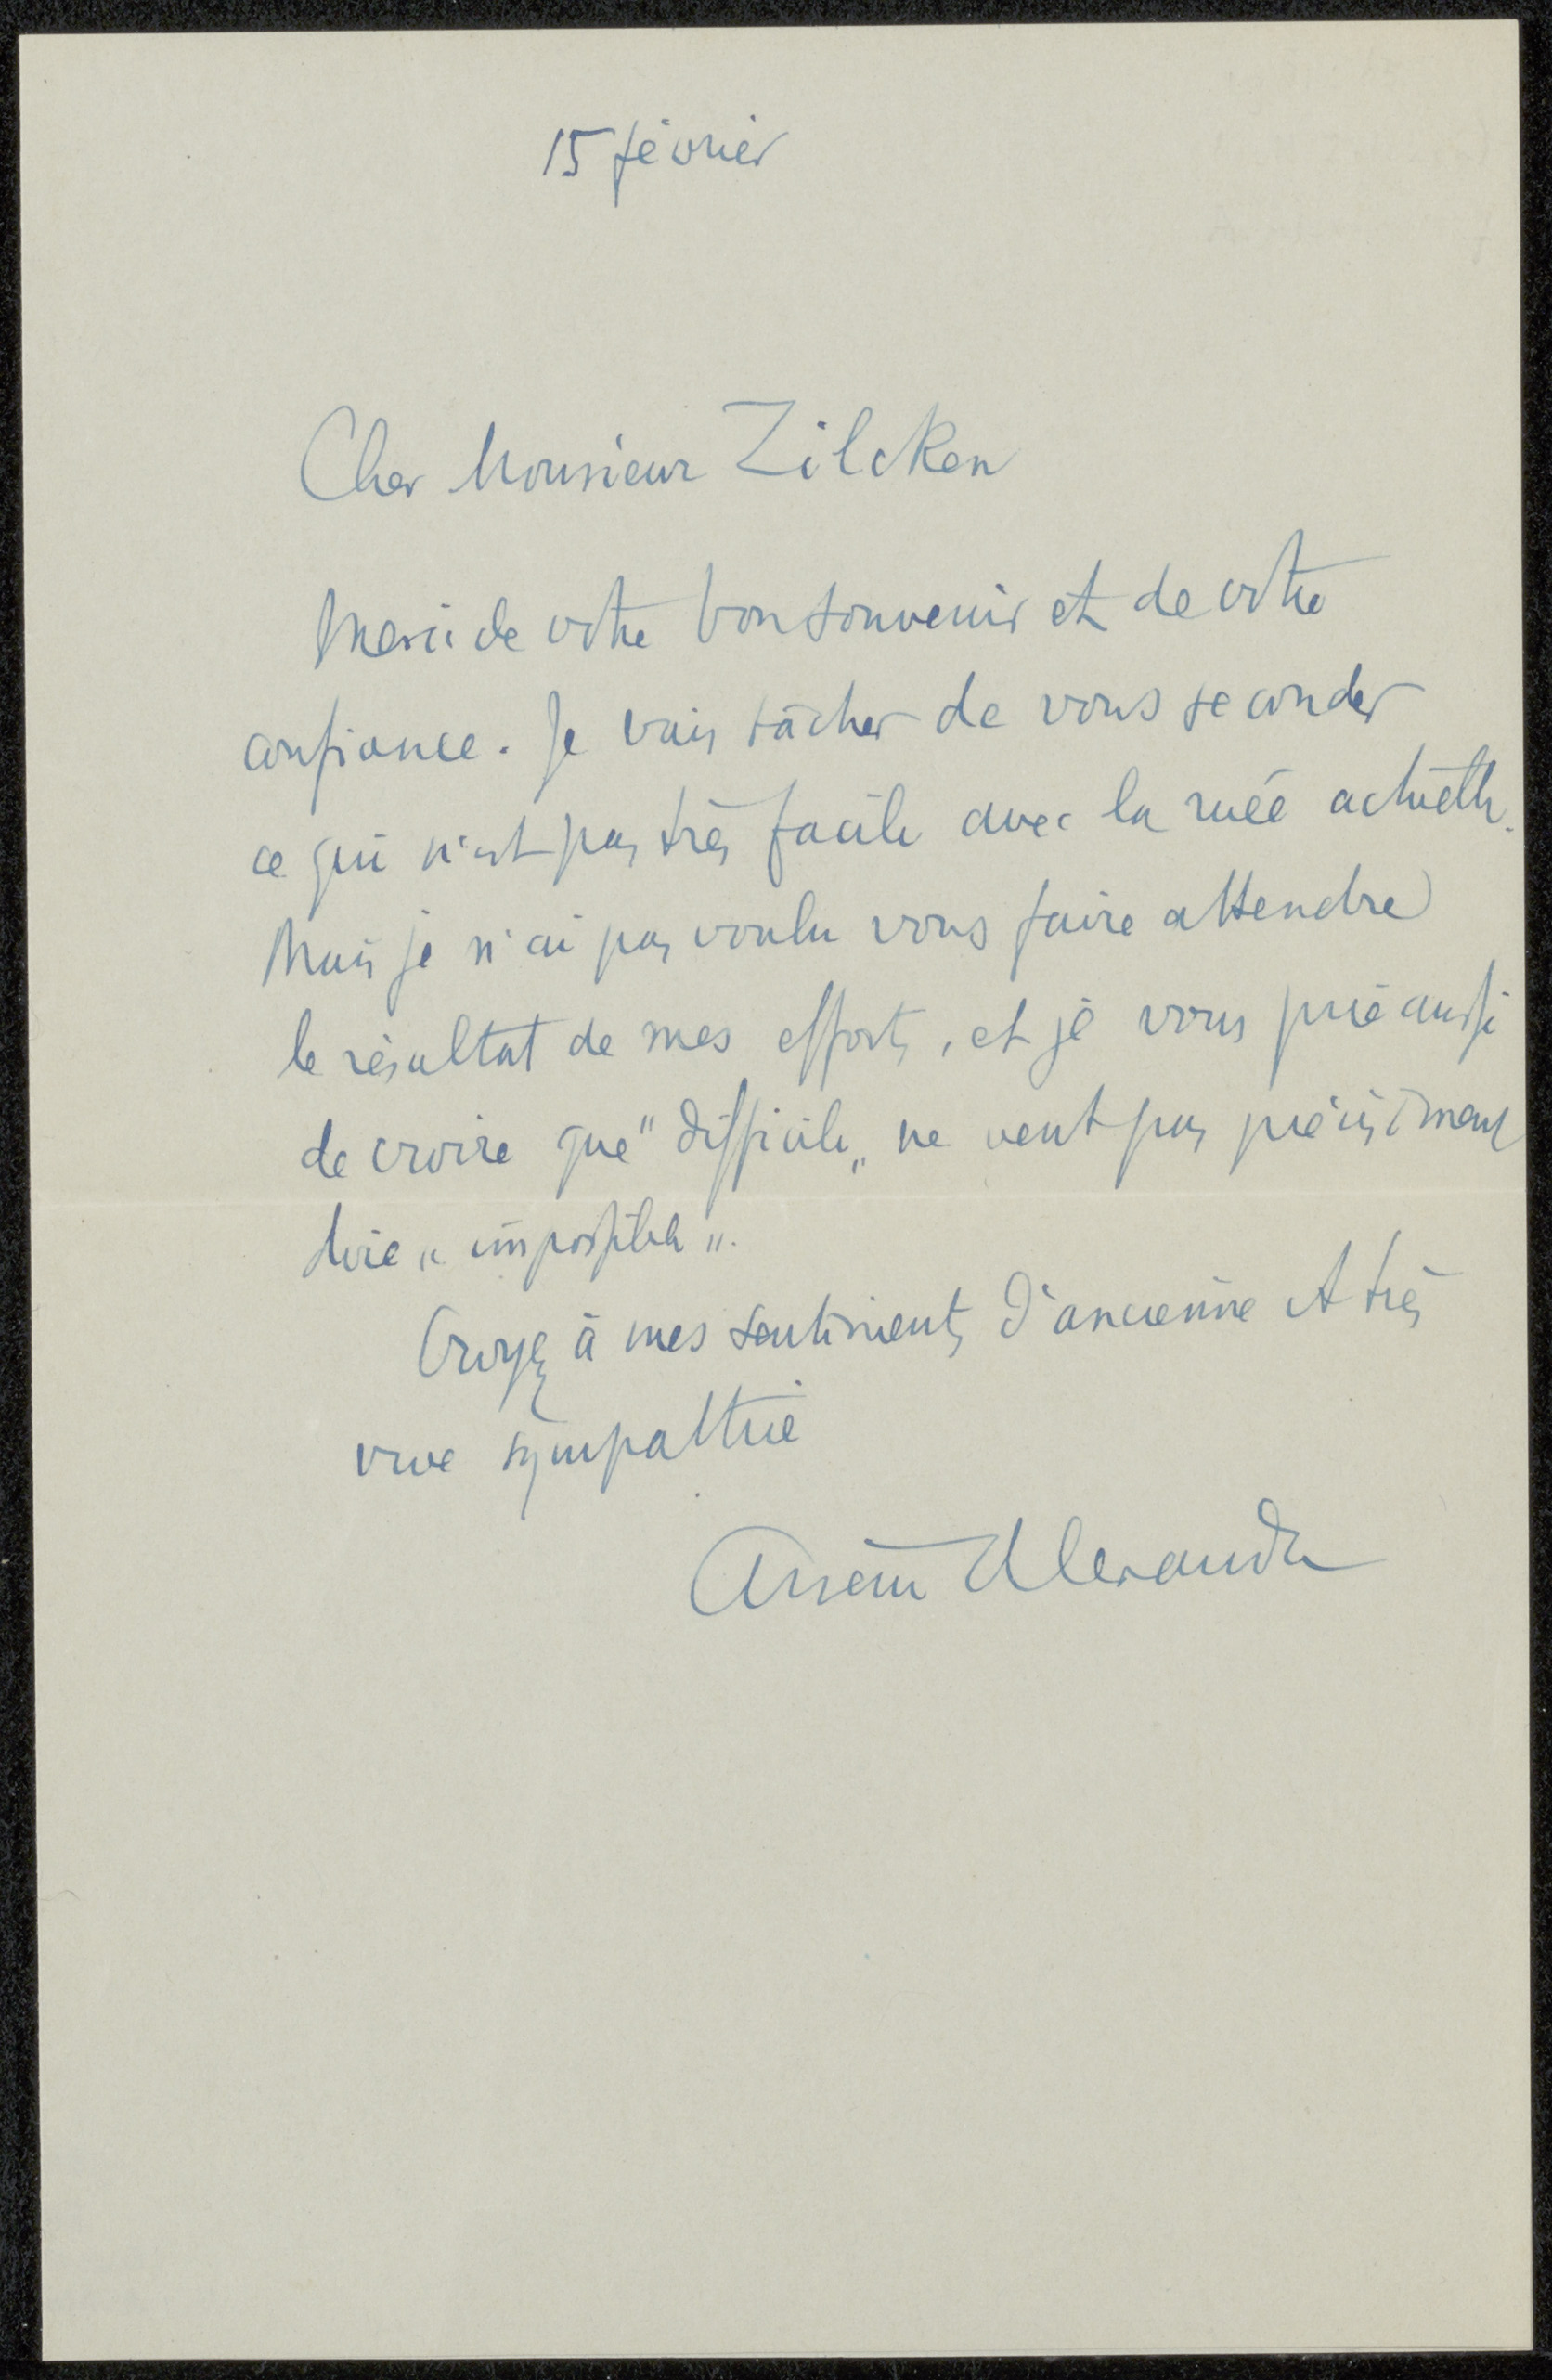 15 février
Cher Monsieur Zilcken
Merci de votre bon souvenir et de votre
confiance. Je vais tâcher de vous seconder
ce qui n'est pas très facile avec la ruée actuelle.
Mais je n'ai pas voulu vous faire attendre
le résultat de mes efforts, et je vous prie aussi
de croire que "difficile" ne veut pas précisément
dire "impossible".
Croyez à mes sentiments d'ancienne et très
vive sympathie
Arsène Alexandre